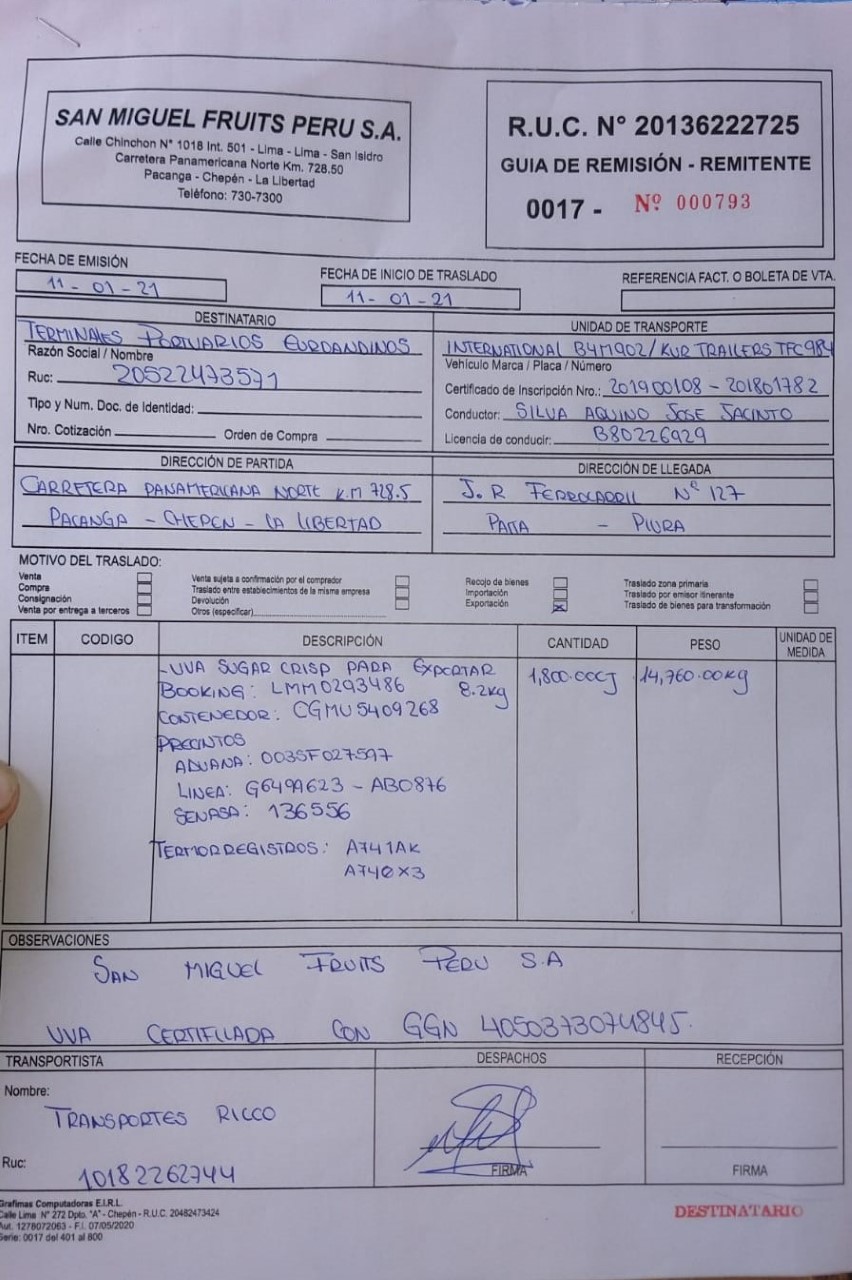 SAN MIGUEL FRUITS PERU S.A.
Calle Chinchon N° 1018 Int. 501 - Lima - Lima - San Isidro
Carretera Panamericana Norte Km. 728.50
Pacanga - Chepén - La Libertad
Teléfono: 730-7300
R.U.C. N° 20136222725
GUIA DE REMISIÓN - REMITENTE
0017 - Nº 000793
FECHA DE EMISIÓN
11-01-21
FECHA DE INICIO DE TRASLADO
11-01-21
REFERENCIA FACT. O BOLETA DE VTA.
DESTINATARIO
TERMINALES PORTUARIOS EUROANDINOS
Razón Social / Nombre
Ruc: 20522473571
Tipo y Num. Doc. de Identidad:
Nro. Cotización Orden de Compra
UNIDAD DE TRANSPORTE
INTERNATIONAL B4M902/KUR TRAILERS TFC984
Vehículo Marca / Placa / Número
Certificado de Inscripción Nro.: 201900108 - 201801782
Conductor: SILVA AQUINO JOSE JACINTO
Licencia de conducir: B80226929
DIRECCIÓN DE PARTIDA
CARRETERA PANAMERICANA NORTE K.M 728.5
PACANGA - CHEPEN - LA LIBERTAD
DIRECCIÓN DE LLEGADA
J.R FERROCARRIL Nº 127
PAITA - PIURA
MOTIVO DEL TRASLADO:
Venta
Compra
Consignación
Venta por entrega a terceros
Venta sujeta a confirmación por el comprador
Traslado entre establecimientos de la misma empresa
Devolución
Otros (especificar)
Recojo de bienes
Importación
Exportación X
Traslado zona primaria
Traslado por emisor itinerante
Traslado de bienes para transformación
ITEM CODIGO DESCRIPCIÓN CANTIDAD PESO UNIDAD DE MEDIDA
-UVA SUGAR CRISP PARA EXPORTAR 1,800.00CJ 14,760.00kg
BOOKING: LMM0293486 8.2kg
CONTENEDOR: CGMU5409268
PRECINTOS
ADUANA: 003SF027597
LINEA: G6499623 - AB0876
SENASA: 136556
TERMORREGISTROS: A741AK
A740X3
OBSERVACIONES
SAN MIGUEL FRUITS PERU S.A
UVA CERTIFICADA CON GGN 4050373074845.
TRANSPORTISTA
Nombre:
TRANSPORTES RICCO
Ruc:
10182262744
DESPACHOS
FIRMA
RECEPCIÓN
FIRMA
Grafimas Computadoras E.I.R.L.
Calle Lima N° 272 Dpto. "A" - Chepén - R.U.C. 20482473424
Aut. 1278072063 - F.I. 07/05/2020
Serie: 0017 del 401 al 800
DESTINATARIO